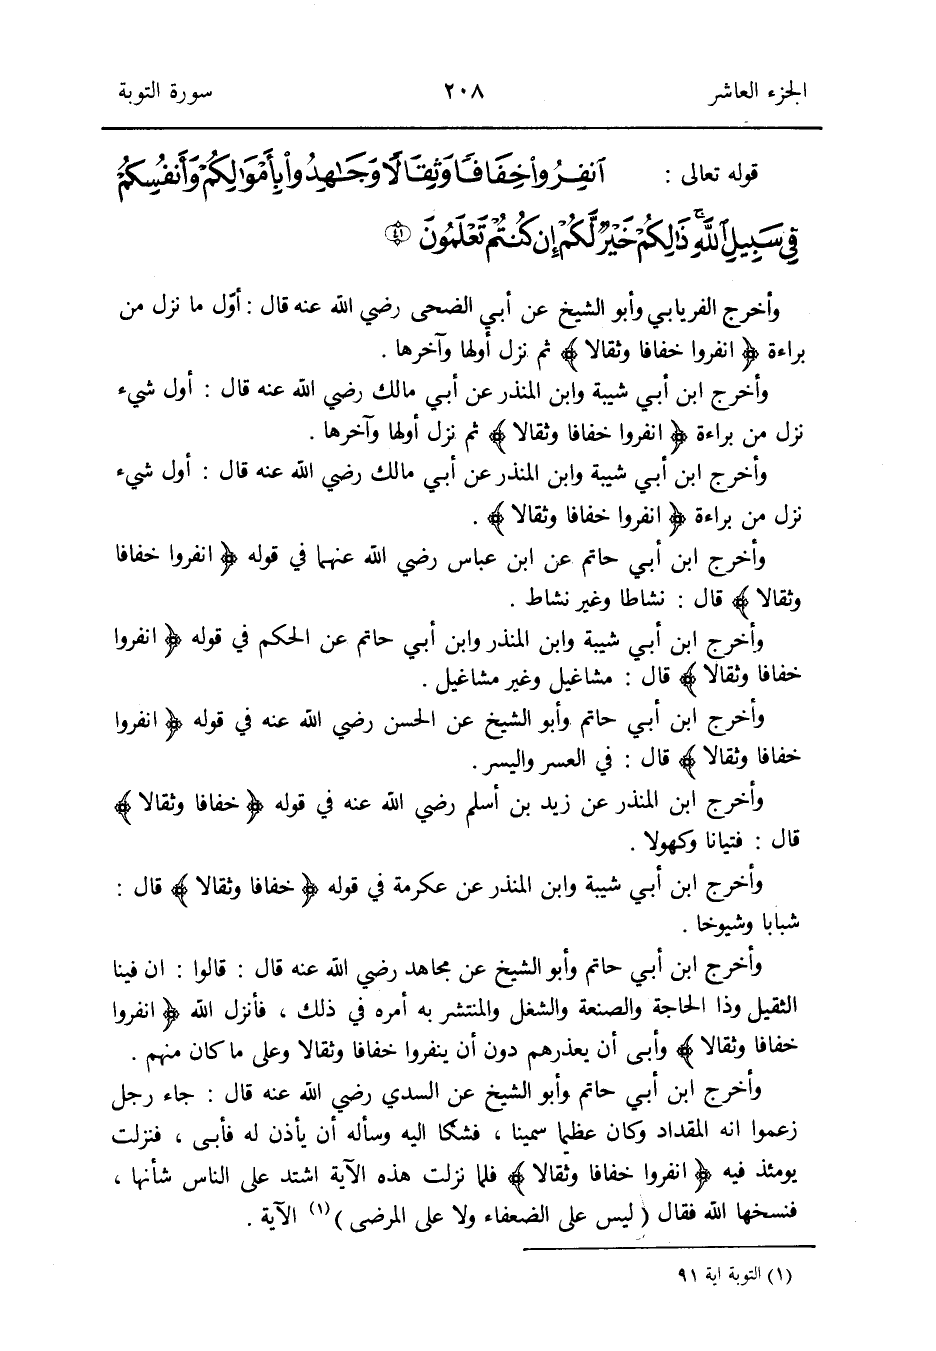 الجزء العاشر ٢٠٨ سورة التوبة
قوله تعالى : ٱنفِرُواْ خِفَافًا وَثِقَالًا وَجَٰهِدُواْ بِأَمْوَٰلِكُمْ وَأَنفُسِكُمْ
فِى سَبِيلِ ٱللَّهِ ۚ ذَٰلِكُمْ خَيْرٌ لَّكُمْ إِن كُنتُمْ تَعْلَمُونَ ٤١
وأخرج الفريابي وأبو الشيخ عن أبي الضحى رضي الله عنه قال : أوّل ما نزل من
براءة ﴿ انفروا خفافا وثقالا ﴾ ثم نزل أولها وآخرها .
وأخرج ابن أبي شيبة وابن المنذر عن أبي مالك رضي الله عنه قال : أول شيء
نزل من براءة ﴿ انفروا خفافا وثقالا ﴾ ثم نزل أولها وآخرها .
وأخرج ابن أبي شيبة وابن المنذر عن أبي مالك رضي الله عنه قال : أول شيء
نزل من براءة ﴿ انفروا خفافا وثقالا ﴾ .
وأخرج ابن أبي حاتم عن ابن عباس رضي الله عنهما في قوله ﴿ انفروا خفافا
وثقالا ﴾ قال : نشاطا وغير نشاط .
وأخرج ابن أبي شيبة وابن المنذر وابن أبي حاتم عن الحكم في قوله ﴿ انفروا
خفافا وثقالا ﴾ قال : مشاغيل وغير مشاغيل .
وأخرج ابن أبي حاتم وأبو الشيخ عن الحسن رضي الله عنه في قوله ﴿ انفروا
خفافا وثقالا ﴾ قال : في العسر واليسر .
وأخرج ابن المنذر عن زيد بن أسلم رضي الله عنه في قوله ﴿ خفافا وثقالا ﴾
قال : فتيانا وكهولا .
وأخرج ابن أبي شيبة وابن المنذر عن عكرمة في قوله ﴿ خفافا وثقالا ﴾ قال :
شبابا وشيوخا .
وأخرج ابن أبي حاتم وأبو الشيخ عن مجاهد رضي الله عنه قال : قالوا : ان فينا
الثقيل وذا الحاجة والصنعة والشغل والمنتشر به أمره في ذلك ، فأنزل الله ﴿ انفروا
خفافا وثقالا ﴾ وأبى أن يعذرهم دون أن ينفروا خفافا وثقالا وعلى ما كان منهم .
وأخرج ابن أبي حاتم وأبو الشيخ عن السدي رضي الله عنه قال : جاء رجل
زعموا انه المقداد وكان عظيما سمينا ، فشكا اليه وسأله أن يأذن له فأبى ، فنزلت
يومئذ فيه ﴿ انفروا خفافا وثقالا ﴾ فلما نزلت هذه الآية اشتد على الناس شأنها ،
فنسخها الله فقال ( ليس على الضعفاء ولا على المرضى ) (١) الآية .
(١) التوبة اية ٩١